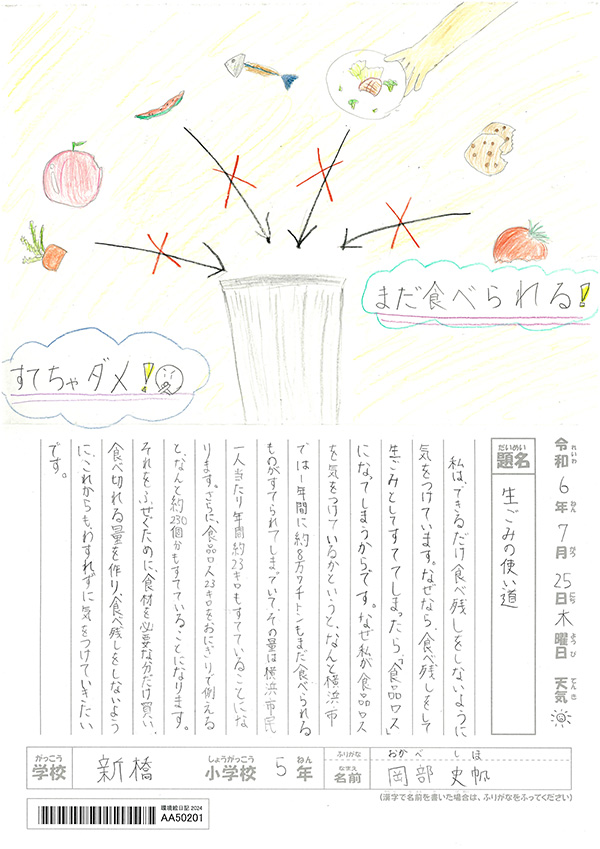 まだ食べられる!
すてちゃダメ!
令和6年7月25日木曜日 天気
れいわ ねん がつ にち ようび てんき
だいめい
題名 生ごみの使い道
私は、できるだけ食べ残しをしないように
気をつけています。なぜなら、食べ残しをして
生ごみとしてすててしまったら「食品ロス」
になってしまうからです。なぜ私が食品ロス
を気をつけているかというと、なんと横浜市
では一年間に約8万7千トンもまだ食べられる
ものがすてられてしまっていて、その量は横浜市民
一人当たり年間約23キロもすてていることにな
ります。さらに、食品ロス23キロをおにぎりで例える
と、なんと約230個分もすてていることになります。
それをふせぐために、食材を必要な分だけ買い、
食べ切れる量を作り、食べ残しをしないよう
に、これからも、わすれずに気をつけていきたい
です。
がっこう しょうがっこう ねん ふりがな おかべ しほ
学校 新橋 小学校 5年 なまえ 名前 岡部 史帆
(漢字で名前を書いた場合は、ふりがなをふってください)
環境絵日記 2024
AA50201